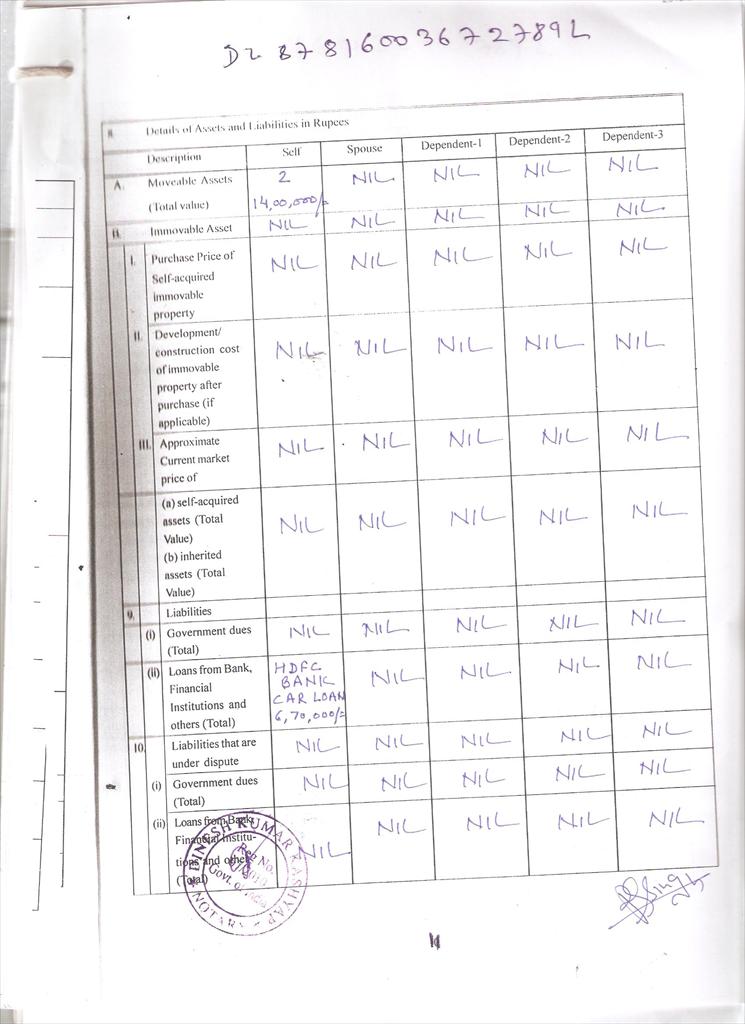 DL 87816003672789L
8. Details of Assets and Liabilities in Rupees
Description Self Spouse Dependent-1 Dependent-2 Dependent-3
A. Moveable Assets 2 NIL NIL NIL NIL
(Total value) 14,00,000/-
B. Immovable Asset NIL NIL NIL NIL NIL
I. Purchase Price of NIL NIL NIL NIL NIL
Self-acquired
immovable
property
II. Development/
construction cost NIL NIL NIL NIL NIL
of immovable
property after
purchase (if
applicable)
III. Approximate NIL NIL NIL NIL NIL
Current market
price of
(a) self-acquired
assets (Total NIL NIL NIL NIL NIL
Value)
(b) inherited
assets (Total
Value)
9. Liabilities
(i) Government dues NIL NIL NIL NIL NIL
(Total)
(ii) Loans from Bank, HDFC NIL NIL NIL NIL
Financial BANK
Institutions and CAR LOAN
others (Total) 6,70,000/-
10. Liabilities that are NIL NIL NIL NIL NIL
under dispute
(i) Government dues NIL NIL NIL NIL NIL
(Total)
(ii) Loans from Bank, NIL NIL NIL NIL NIL
Financial Institu-
tions and other
(Total)
DINESH KUMAR KASHYAP
Reg No.
Govt. of India
NOTARY
11